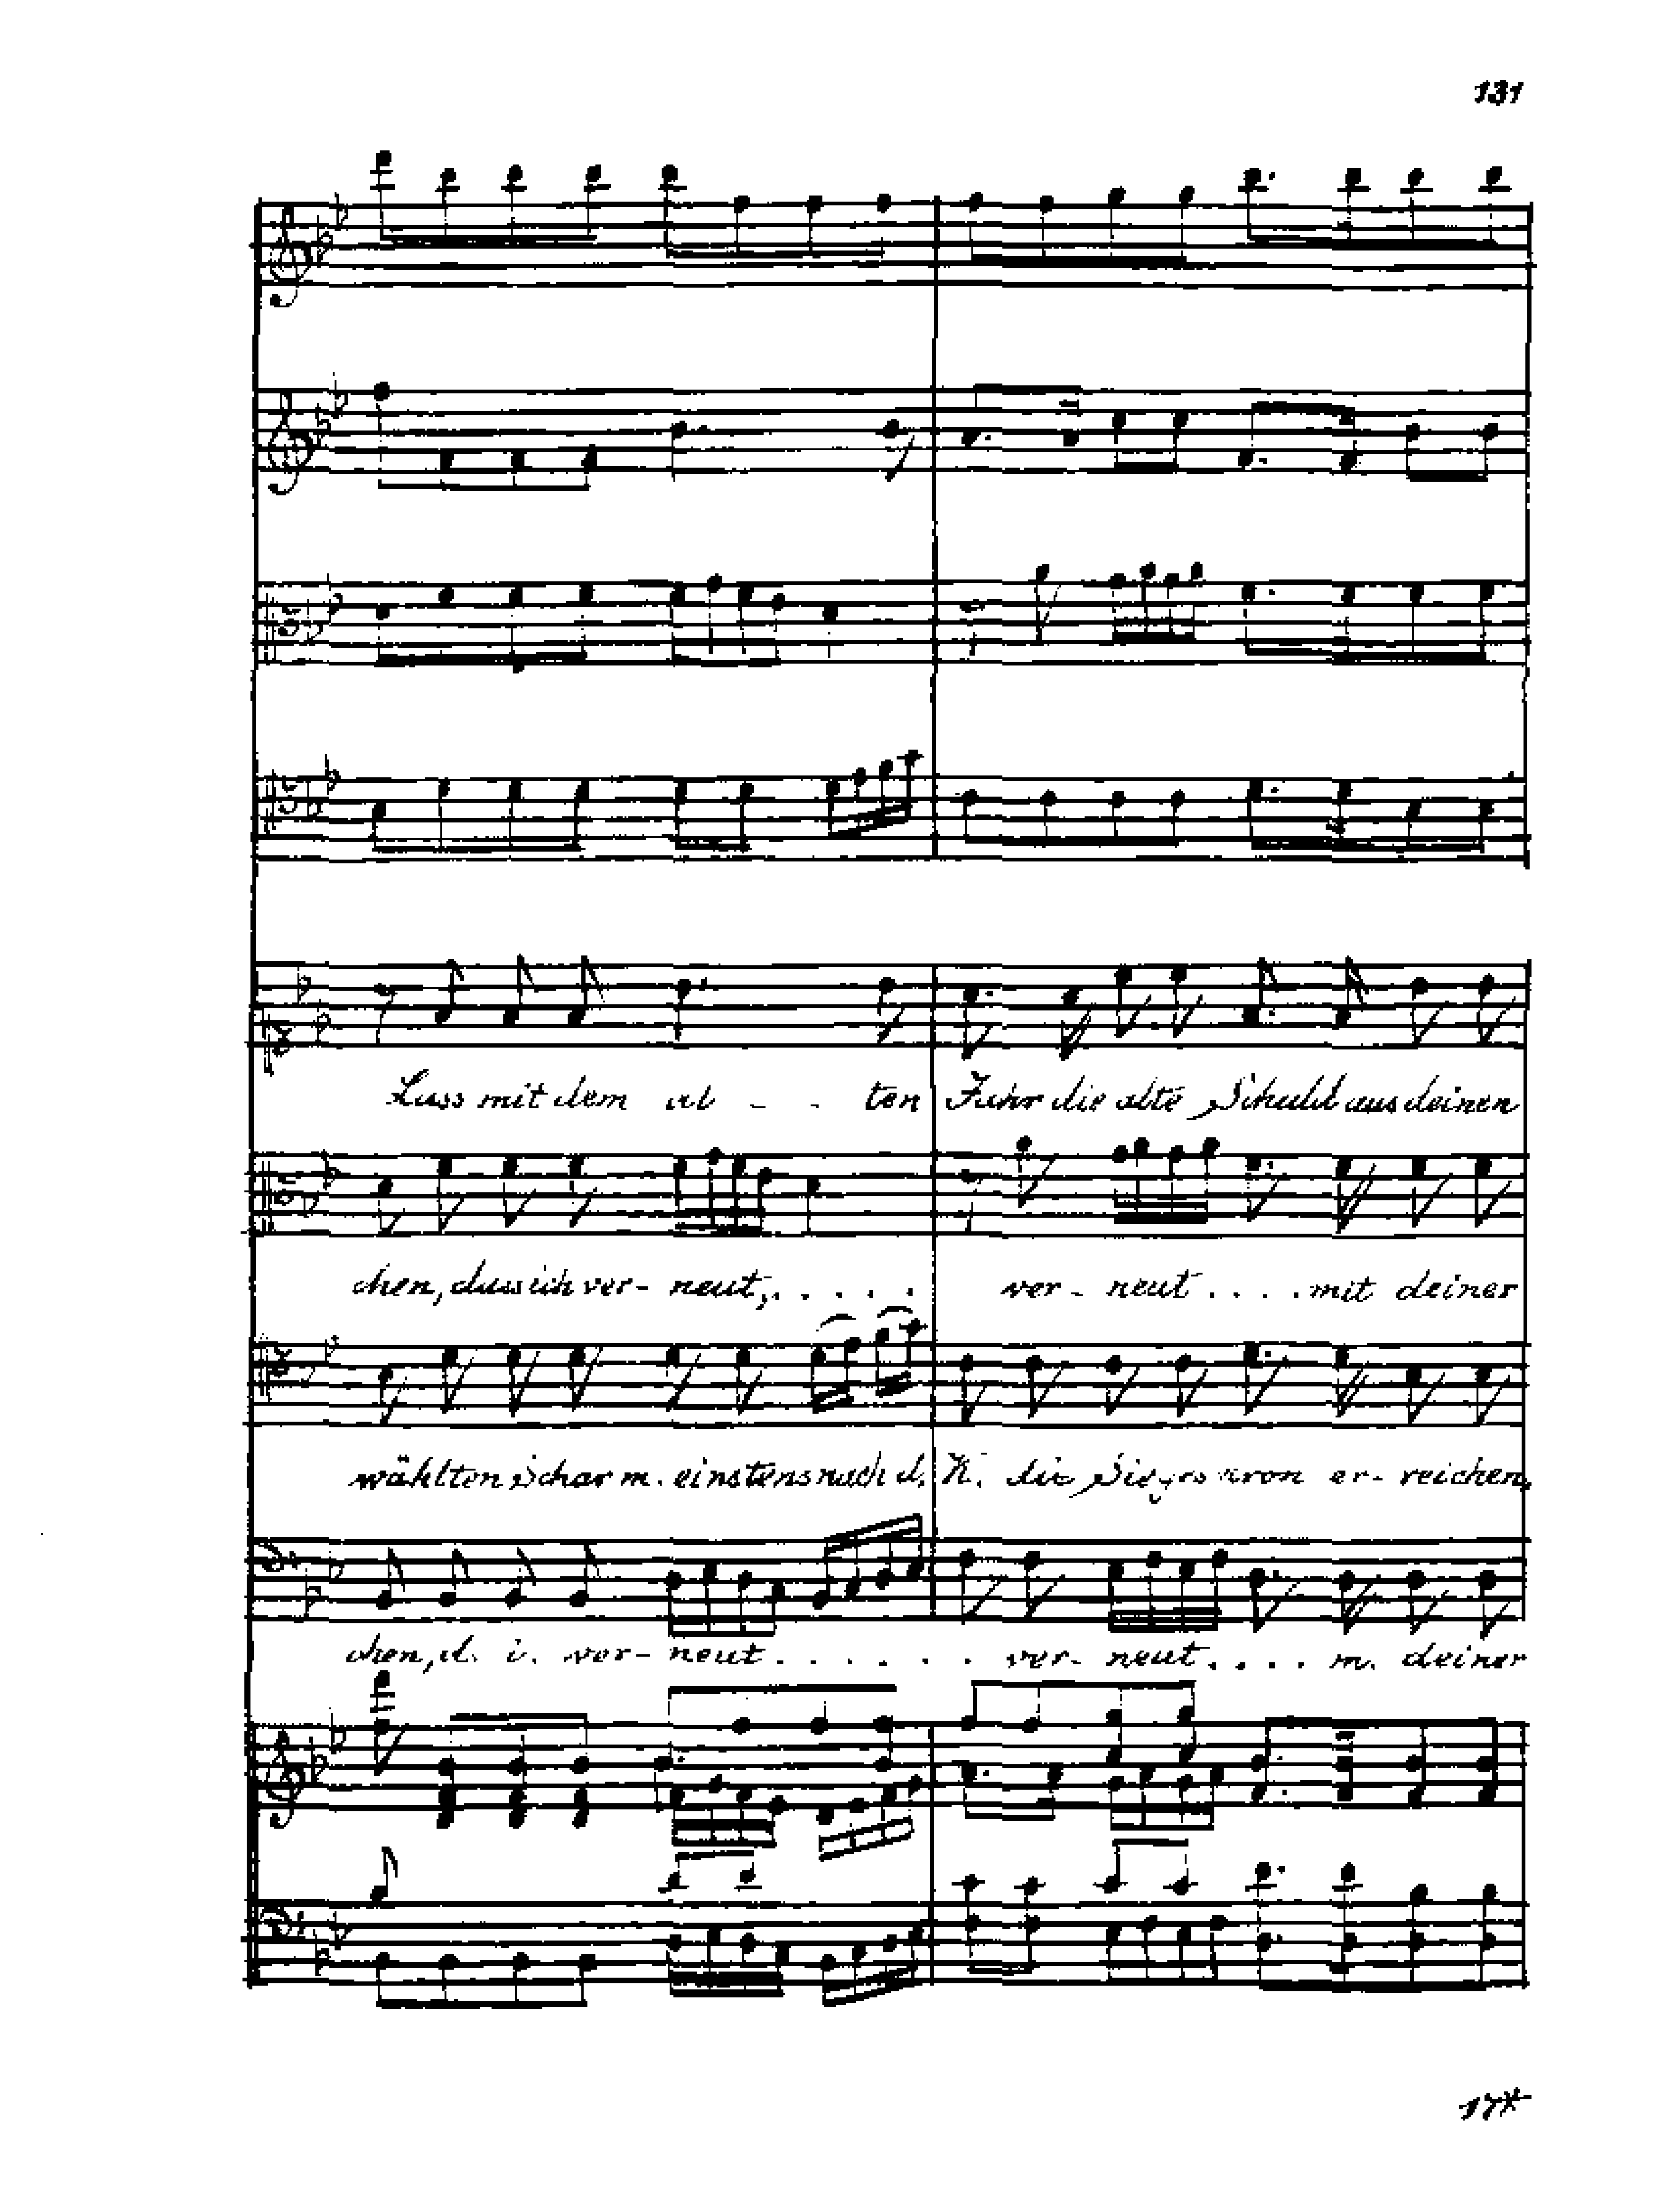 131
Lass mit dem al - - ten Jahr die alte Schuld aus deinen
chen, dass ich ver- neut, . . . . . ver- neut . . . . mit deiner
wählten Schar m. einstens nach d. K. die Siegeskron er- reichen,
chen, d. i. ver- neut . . . . . . ver- neut . . . . m. deiner
17*